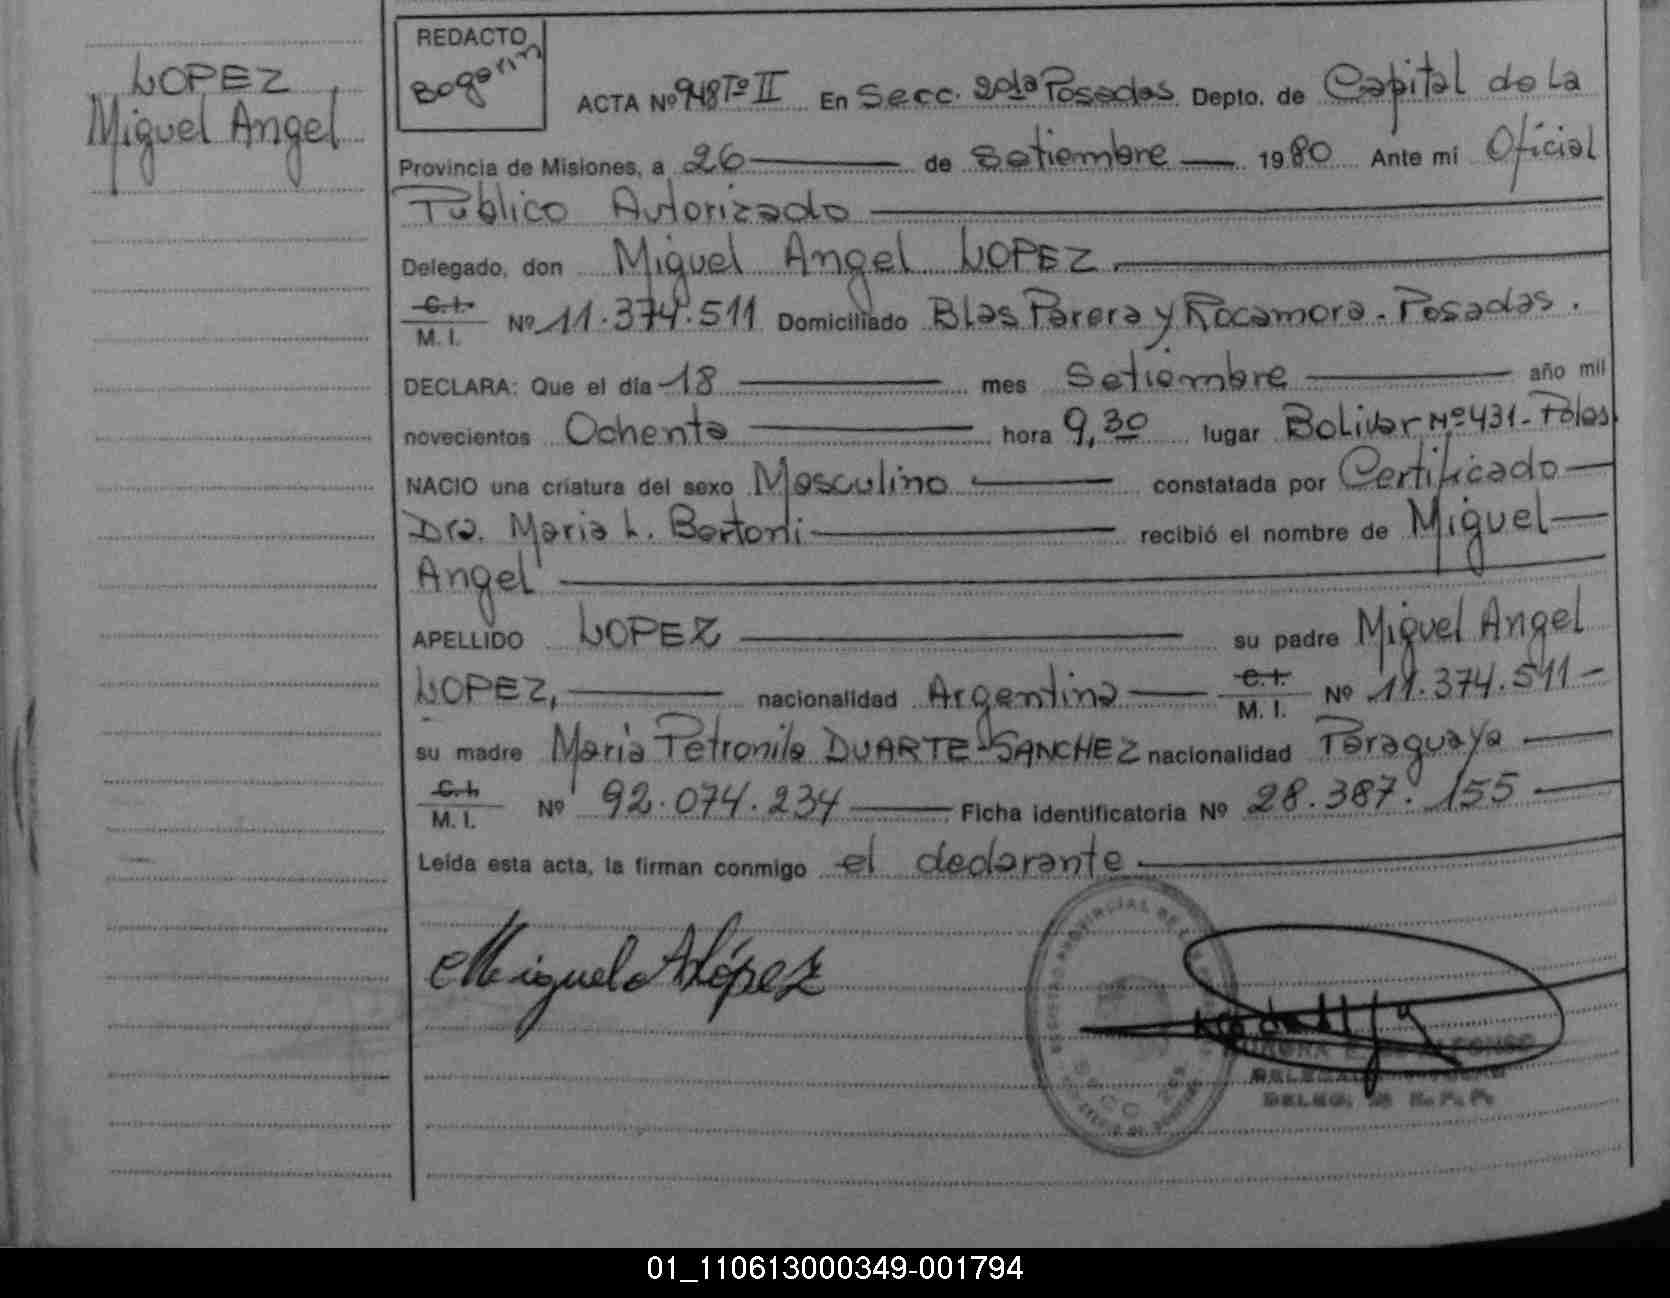 LOPEZ
Miguel Angel
REDACTO
ACTA Nº 948 Tº II En Secc. 2da Posadas. Depto. de Capital de la
Provincia de Misiones, a 26 de Setiembre 1980 Ante mí Oficial
Público Autorizado
Delegado, don Miguel Angel LOPEZ
C.I.
M. I. Nº 11.374.511 Domiciliado Blas Parera y Rocamora. Posadas.
DECLARA: Que el día 18 mes Setiembre año mil
novecientos Ochenta hora 9,30 lugar Bolivar Nº 431-Pdas
NACIO una criatura del sexo Masculino constatada por Certificado
Dra. Maria L. Bertoni recibió el nombre de Miguel
Angel
APELLIDO LOPEZ su padre Miguel Angel
LOPEZ, nacionalidad Argentina C.I.
M. I. Nº 11.374.511
su madre Maria Petronila DUARTE-SANCHEZ nacionalidad Paraguaya
C.I.
M. I. Nº 92.074.234 Ficha identificatoria Nº 28.387.155
Leída esta acta, la firman conmigo el declarante
Miguel A López
SECC. 2da
DELEG. 2a R. P. P.
01_110613000349-001794